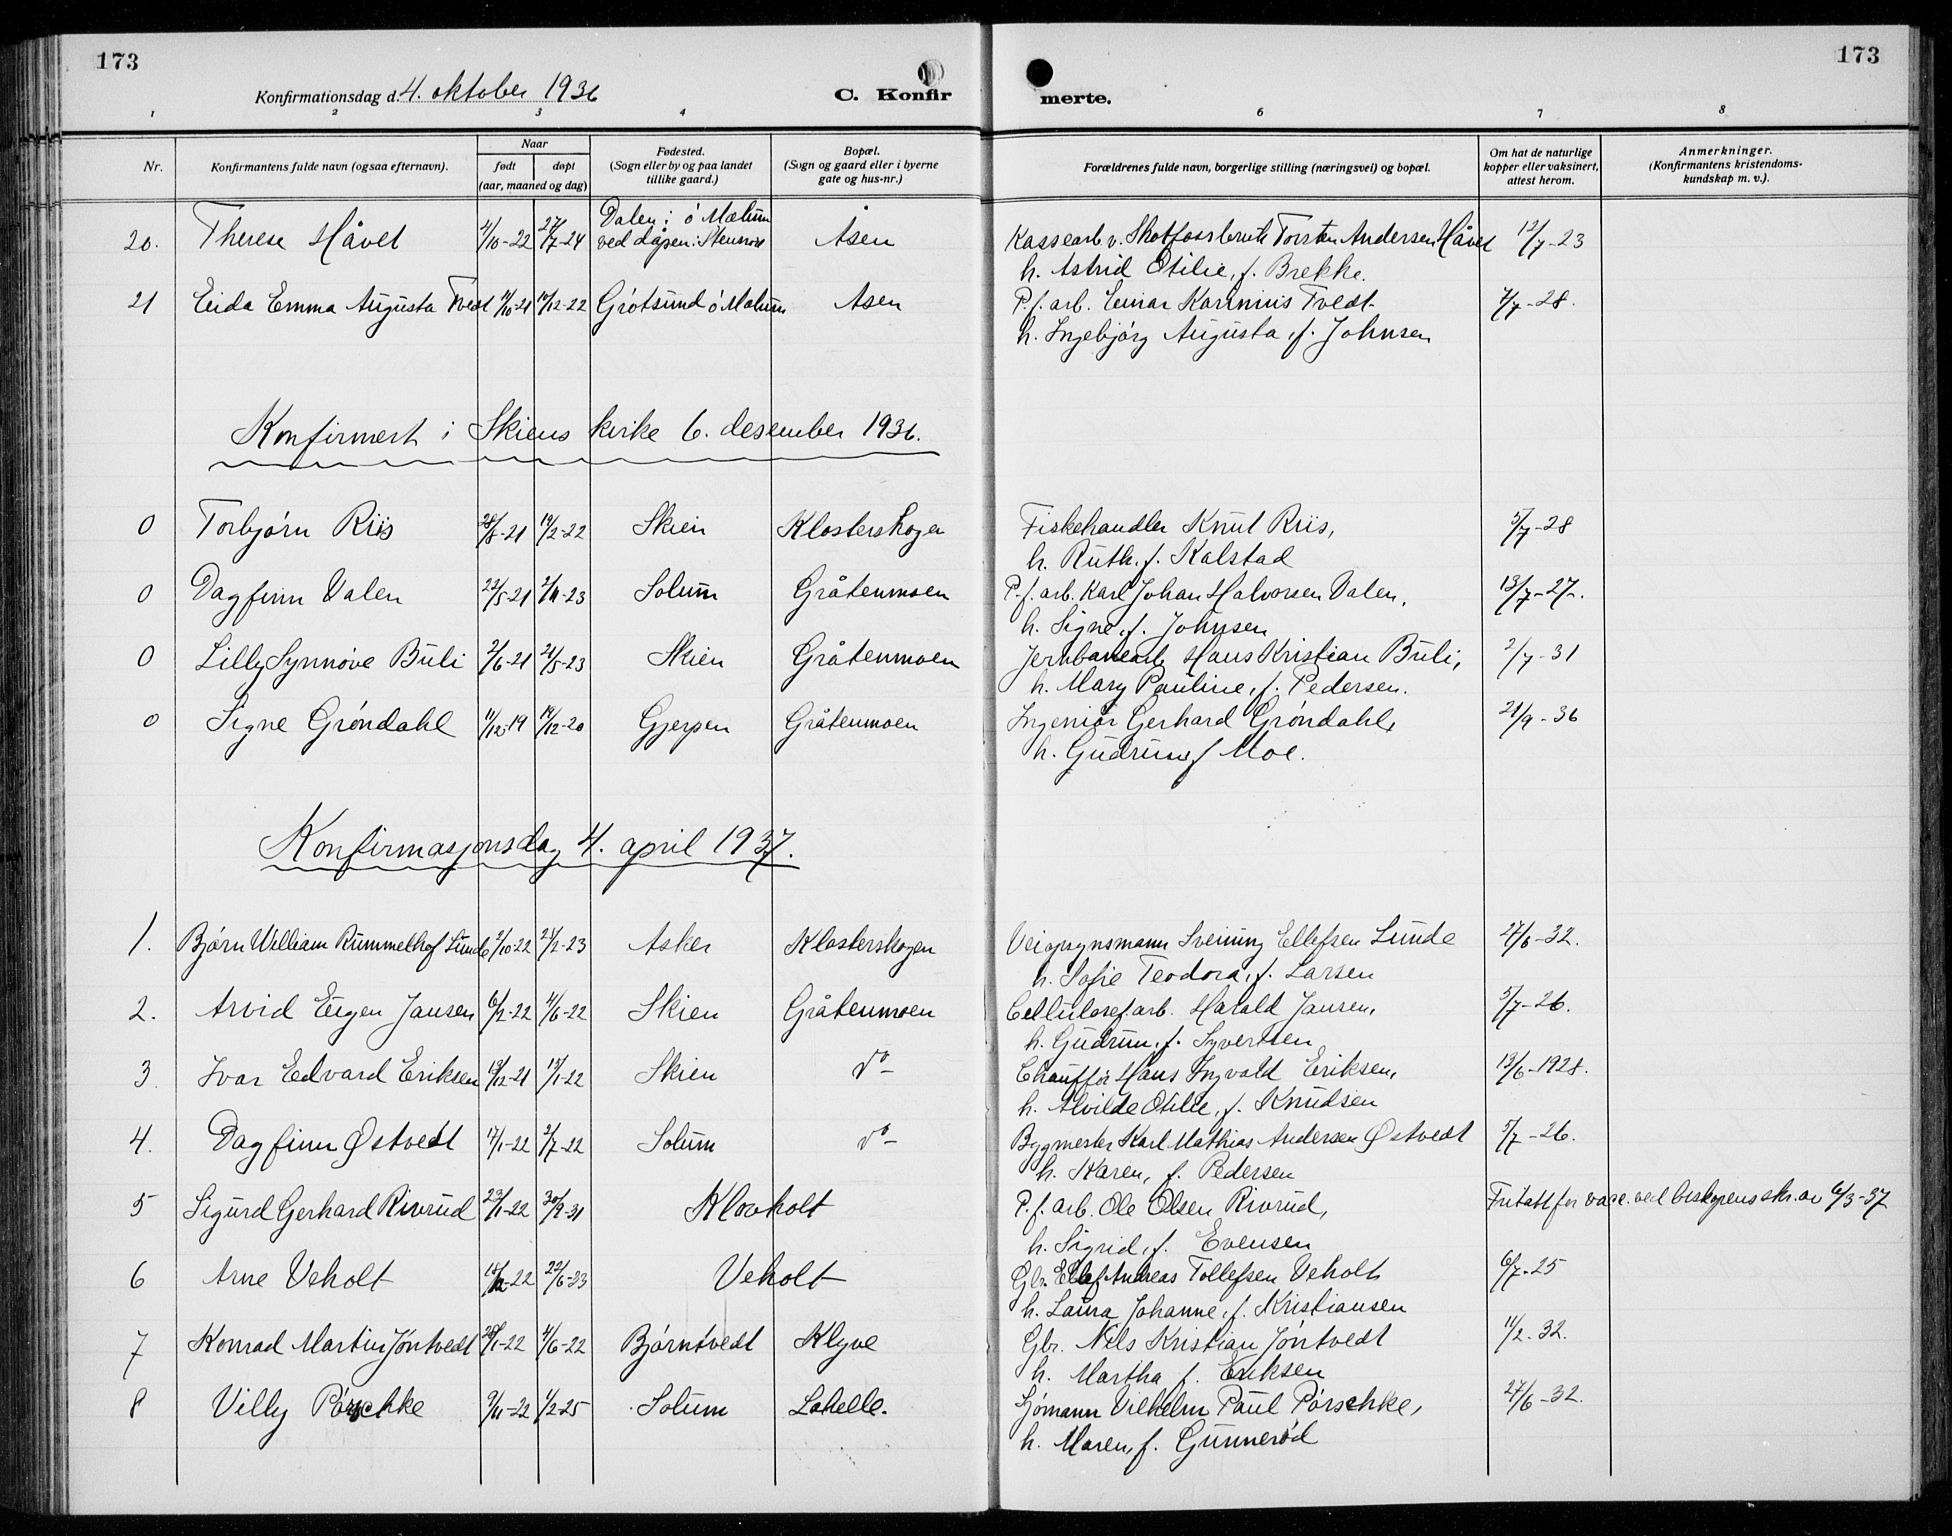 173
173
Konfirmationsdag d. 4. oktober 1936
C. Konfir
merte.
1 2 3 4 6 7 8
Nr. Konfirmantens fulde navn (ogsaa efternavn). Naar født døpt (aar, maaned og dag) Fødested. (Sogn eller by og paa landet tillike gaard.) Bopæl. (Sogn og gaard eller i byerne gate og hus-nr.) Forældrenes fulde navn, borgerlige stilling (næringsvei) og bopæl. Om hat de naturlige kopper eller vaksinert, attest herom. Anmerkninger. (Konfirmantens kristendoms-kundskap m. v.).
Dalen i ø Melum
20. Therese Håvet 4/10-22 27/7-24 ved dåpen: Stensrø Åsen Kassearb v. Skotfossbruk Torsten Andersen Håvet 12/7-23
h. Astrid Otilie, f. Brekke.
21 Eida Emma Augusta Tvedt 11/10-21 17/12-22 Grøtsund ø Melum Åsen P.f. arb. Einar Karinius Tvedt 7/7-28.
h. Ingebjørg Augusta, f. Johnsen
Konfirmert i Skiens kirke 6. desember 1936.
0 Torbjørn Riis 28/8-21 19/2-22 Skien Klosterskogen Fiskehandler Knut Riis, 5/7-28
h. Ruth, f. Kalstad
0 Dagfinn Valen 22/5-21 2/11-23 Solum Gråtenmoen P.f. arb. Karl Johan Halvorsen Valen, 13/7-27.
h. Signe, f. Johnsen
0 Lilly Synnøve Buli 2/6-21 21/5-23 Skien Gråtenmoen Jernbanearb Hans Kristian Buli, 2/7-31
h. Mary Pauline, f. Pedersen.
0 Signe Grøndahl 11/12-19 19/12-20 Gjerpen Gråtenmoen Ingeniør Gerhard Grøndahl, 21/9-36
h. Gudrun f Moe.
Konfirmasjonsdag 4. april 1937.
1. Bjørn William Rummelhof Lunde 9/10-22 21/2-23 Asker Klosterskogen Veiopsynsmann Sveinung Ellefsen Lunde 27/6-32.
h. Sofie Teodora, f. Larsen
2. Arvid Eugen Jansen 6/2-22 4/6-22 Skien Gråtenmoen Cellulosefarb. Harald Jansen, 5/7-26.
h. Gudrun, f. Syvertsen
3. Ivar Edvard Eriksen 19/12-21 15/1-22 Skien do Chauffør Hans Ingvald Eriksen, 13/6-1928.
h. Alvilde Otilie, f. Knudsen
4. Dagfinn Østvedt 17/1-22 2/7-22 Solum do Byggmester Karl Mathias Andersen Østvedt 5/7-26.
h. Karen, f. Pedersen
5 Sigurd Gerhard Rivrud 23/1-22 30/9-31 Klovholt P.f. arb. Ole Olsen Rivrud, Fritatt for vacc. ved biskopens skr. av 6/3-37
h. Sigrid, f. Evensen
6 Arne Veholt 15/12-22 22/6-23 Veholt Gbr. Ellef Andreas Tollefsen Veholt 6/7-25
h. Laura Johanne, f. Kristiansen
7 Konrad Martin Jøntvedt 28/1-22 4/6-22 Bjørntvedt Klyve Gbr. Nils Kristian Jøntvedt 11/2-32.
h. Martha f. Eriksen
8 Villy Pørschke 9/11-22 1/2-25 Solum Lahelle. Sjømann Vilhelm Paul Pørschke, 27/6-32.
h. Maren, f. Gunnerød